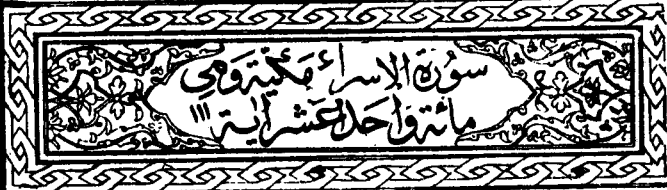 سُورَةُ الإسراء مَكيّة وَهي
مائة وَاحدَ عَشر آية ١١١